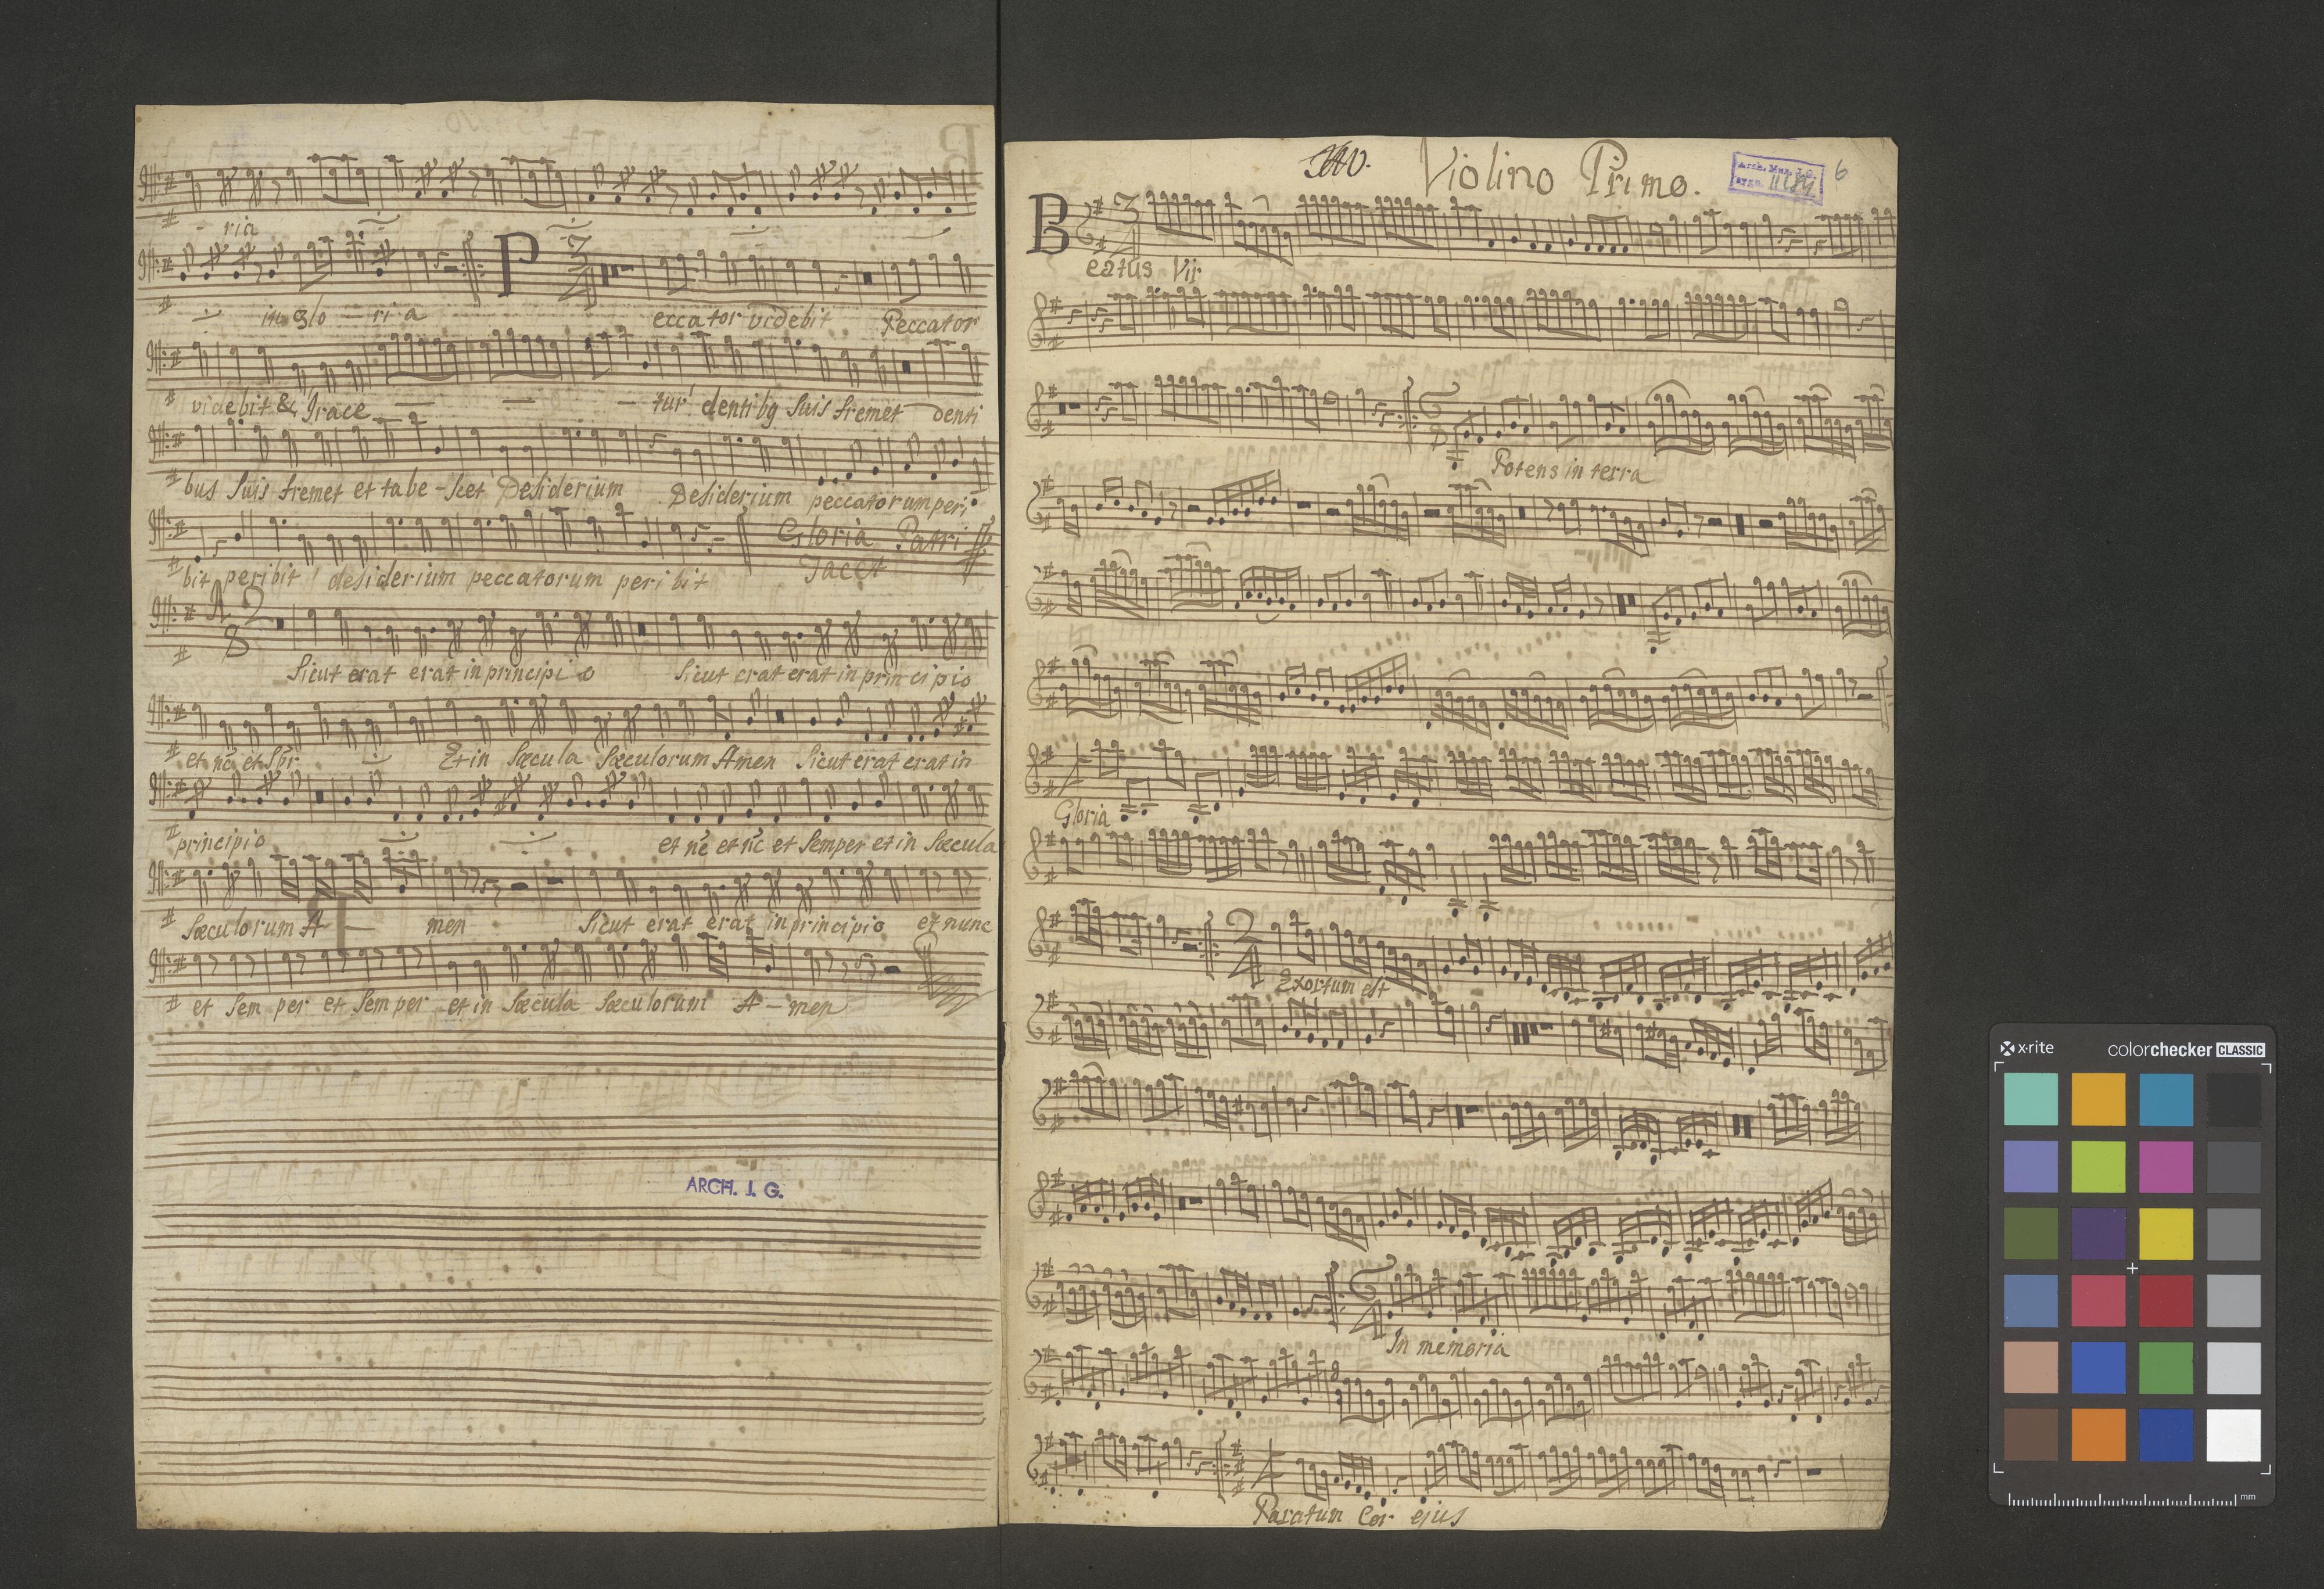 - ria
in glo - ri a
P eccator videbit Peccator
videbit & Irace - - - tur dentibg Suis fremet denti
bus Suis fremet et tabe - Scet Desiderium Desiderium peccatorum peri,
Gloria Patri
Tacet
bit peribit desiderium peccatorum peribit
Sicut erat erat in principi o Sicut erat erat in prin ci pio
et nc̄ et Spr Et in Sæcula Sæculorum Amen Sicut erat erat in
principio et nc̄ et nc̄ et Semper et in Sæcula
Sæculorum A - men Sicut erat erat in principio et nunc
et Sem per et Sem per et in Sæcula Sæculorum A - men
ARCH. J. G.
Violino Primo.
Arch. Mus. J.G.
6
B
3
4
eatus Vir
Potens in terra
Gloria
2
4
Exortum est
In memoria
Paratum Cor ejus
x·rite colorchecker CLASSIC
mm